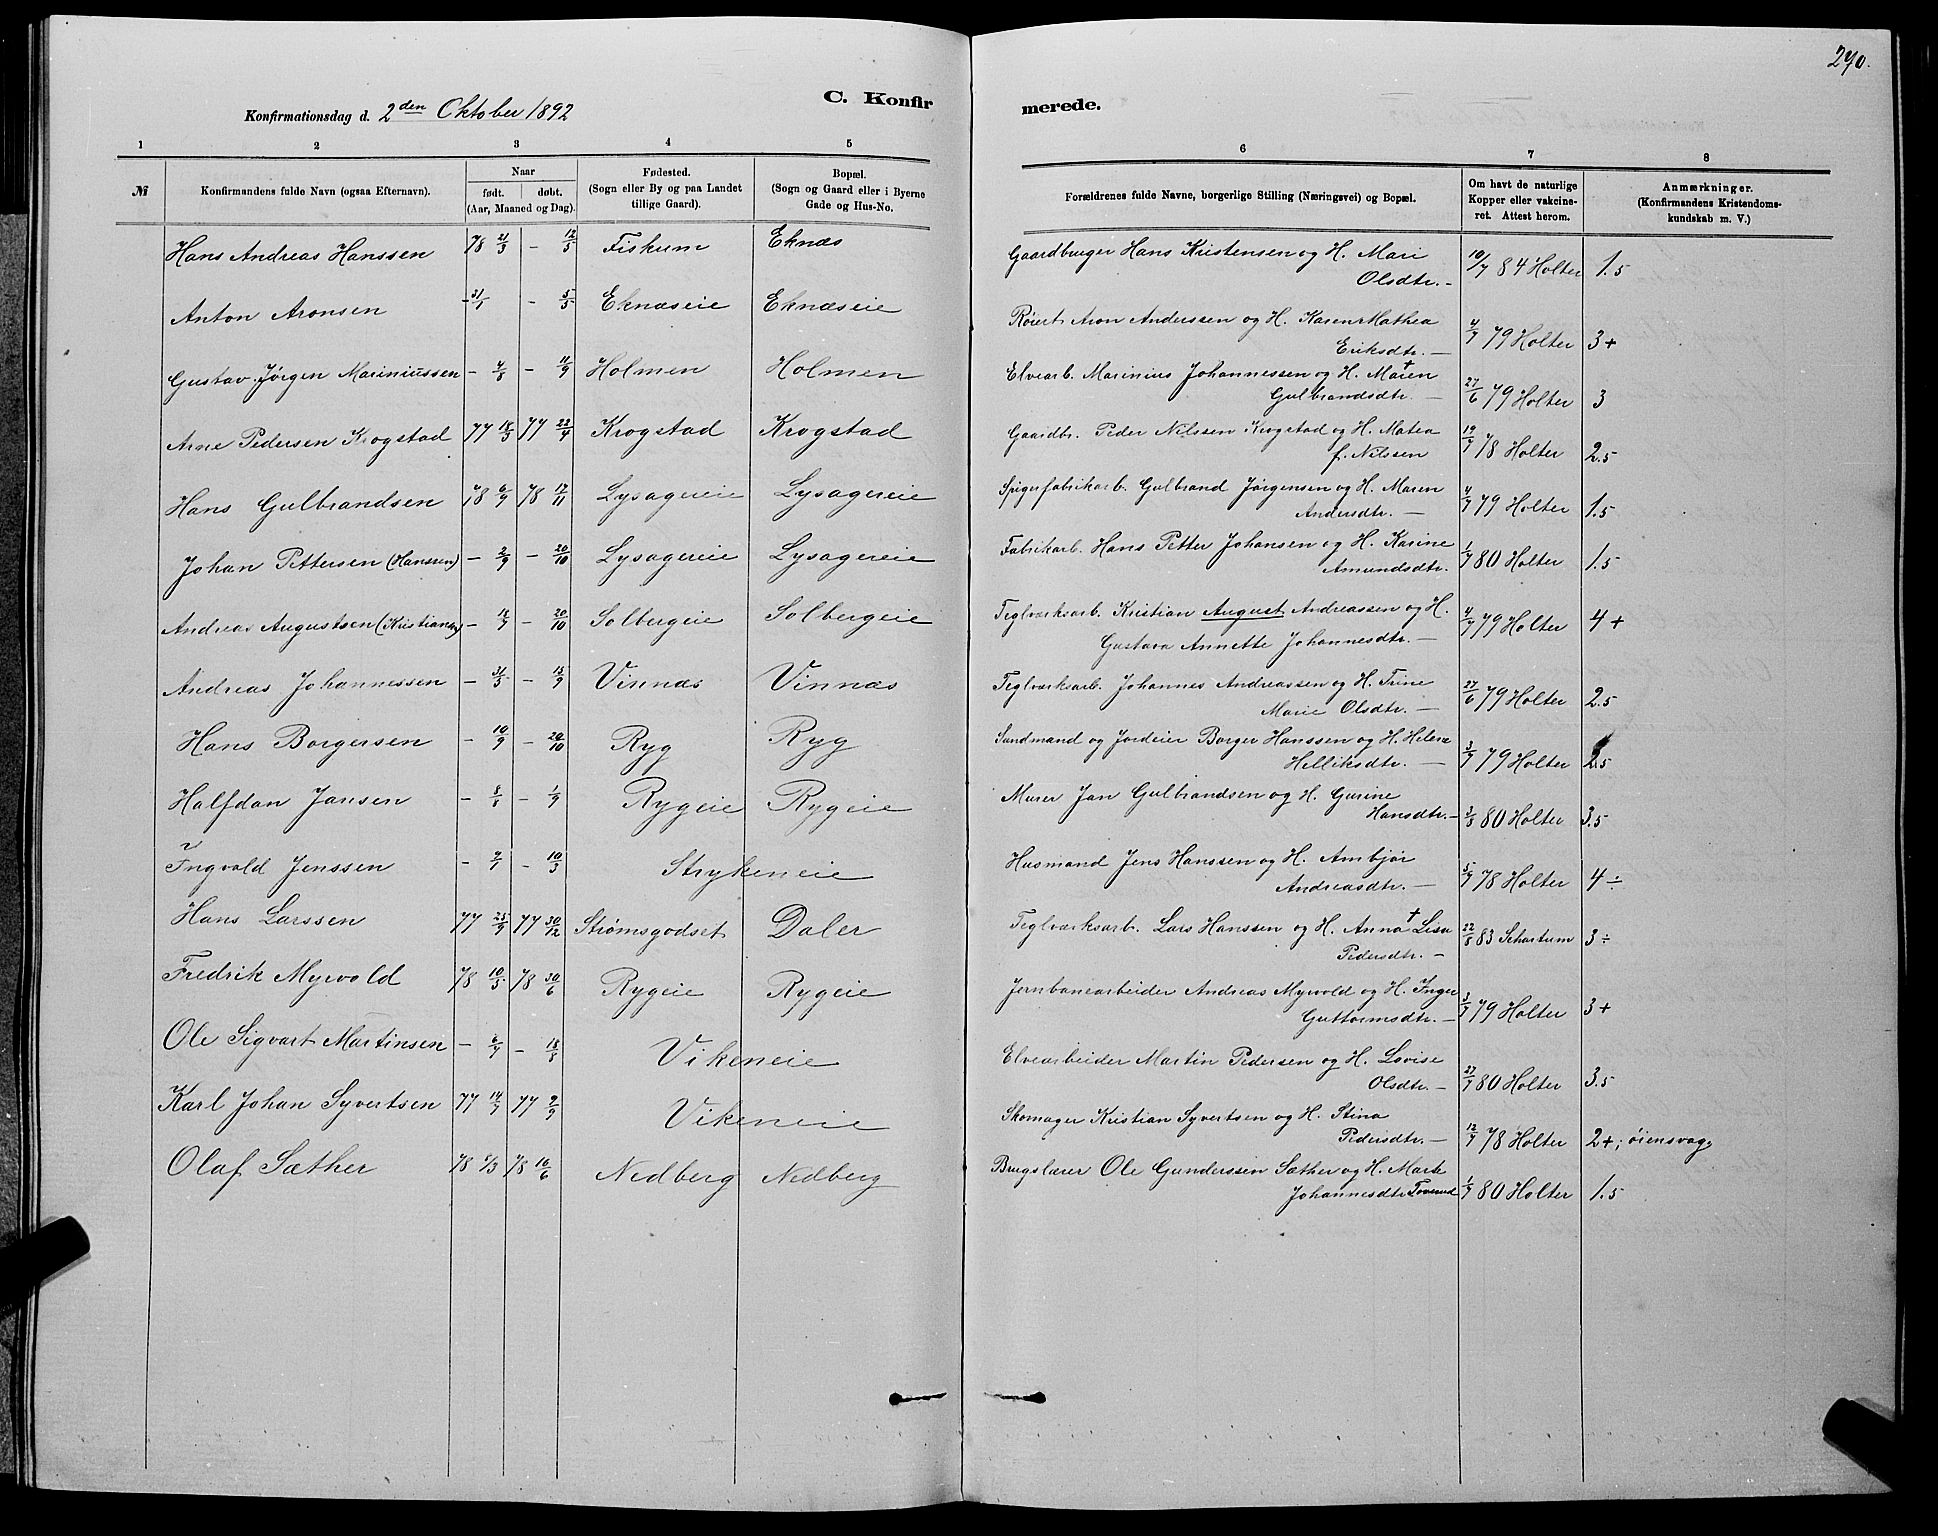 270.
C. Konfir
merede.
Konfirmationsdag d. 2den Oktober 1892
1 2 3 4 5 6 7 8
№ Konfirmandens fulde Navn (ogsaa Efternavn). Naar født. døbt. (Aar, Maaned og Dag). Fødested. (Sogn eller By og paa Landet tillige Gaard). Bopæl. (Sogn og Gaard eller i Byerne Gade og Hus-No. Forældrenes fulde Navne, borgerlige Stilling (Næringsvei) og Bopæl. Om havt de naturlige Kopper eller vakcineret. Attest herom. Anmærkninger. (Konfirmandens Kristendomskundskab m. V.)
Hans Andreas Hanssen 78 21/3 – 12/5 Fiskum Eknæs Gaardbruger Hans Kristensen og H. Mari 10/7 84 Holter 1.5
Olsdtr. –
Anton Aronsen – 31/1 – 5/5 Eknæseie Eknæseie Røiert Aron Anderssen og H. Karen Mathea 4/7 79 Holter 3+
Eriksdtr. –
Gustav Jørgen Mariniussen – 4/8 – 11/9 Holmen Holmen Elvearb. Marinius Johannessen og H. Maren + 27/6 79 Holter 3
Gulbrandsdtr. –
Arne Pedersen Krogstad 77 18/3 77 22/4 Krogstad Krogstad Gaardbr. Peder Nilssen Krogstad og H. Matea 19/7 78 Holter 2.5
f. Nilssen
Hans Gulbrandsen 78 6/9 78 17/11 Lysagereie Lysagereie Spigerfabrikarb. Gulbrand Jørgensen og H. Maren 4/7 79 Holter 1.5
Andersdtr. –
Johan Pettersen (Hanssen) – 2/9 – 20/10 Lysagereie Lysagereie Fabrikarb. Hans Petter Johansen og H. Karine 1/7 80 Holter 1.5
Amundsdtr. –
Andreas Augustsen (Kristiansen) – 18/7 – 20/10 Solbergeie Solbergeie Teglværksarb. Kristian August Andreassen og H. 4/7 79 Holter 4+
Gustava Annette Johannesdtr. –
Andreas Johannessen – 31/3 – 15/9 Vinnæs Vinnæs Teglværksarb. Johannes Andreassen og H. Trine 27/6 79 Holter 2.5
Marie Olsdtr. –
Hans Borgersen – 10/9 – 20/10 Ryg Ryg Sandmand og Jordeier Borger Hanssen og H. Helene 3/7 79 Holter 2.5
Helliksdtr. –
Halfdan Jansen – 8/8 – 1/9 Rygeie Rygeie Murer Jan Gulbrandsen og H. Gurine 3/5 80 Holter 3.5
Hansdtr. –
Ingvald Jenssen – 7/1 – 10/3 Strykeneie Husmand Jens Hanssen og H. Ambjør 5/7 78 Holter 4 ÷
Andreasdtr. –
Hans Larssen 77 25/9 77 30/12 Strømsgodset Daler Teglværksarb. Lars Hanssen og H. Anna + Lisa 22/8 83 Schartum 3 ÷
Pedersdtr. –
Fredrik Myrvold 78 10/5 78 30/6 Rygeie Rygeie Jernbanearbeider Andreas Myrvold og H. Inger 3/7 79 Holter 3+
Guttormsdtr. –
Ole Sigvart Martinsen – 6/7 – 18/8 Vikeneie Elvearbeider Martin Pedersen og H. Lovise 27/7 80 Holter 3.5
Olsdtr –
Karl Johan Syvertsen 77 14/7 77 9/9 Vikeneie Skomager Kristian Syvertsen og H. Stina 12/7 78 Holter 2+; øiensvag
Pedersdtr. –
Olaf Sæther 78 5/3 78 10/6 Nedberg Nedberg Brugslærer Ole Gunderssen Sæther og H. Marte 1/7 80 Holter 1.5
Johannesdtr.